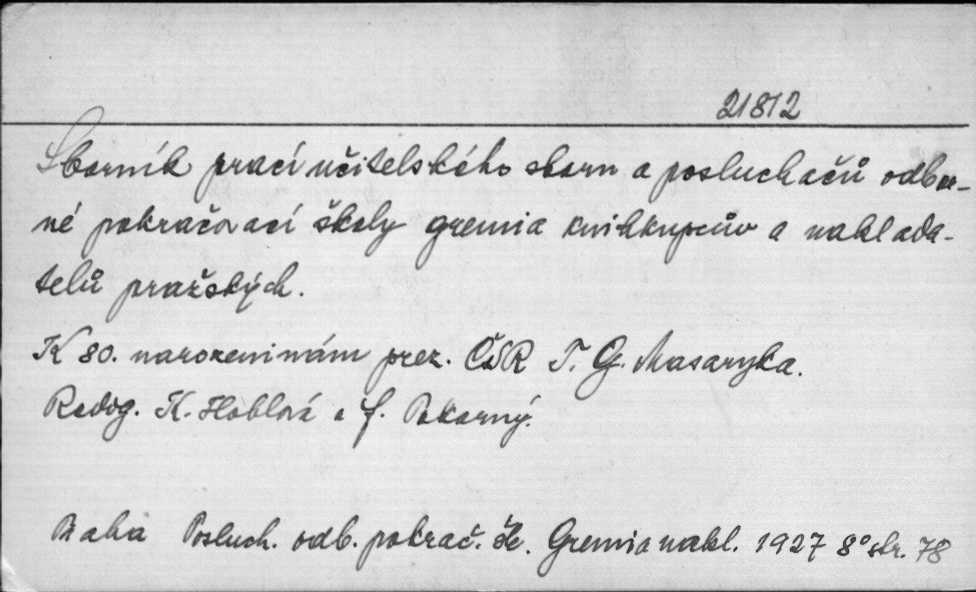 21812
Sborník prací učitelského sboru a posluchačů odbor-
né pokračovací školy gremia knihkupcův a naklada-
telů pražských.
K 80. narozeninám prez. ČSR T. G. Masaryka.
Redig. K. Hoblová a J. Pokorný.
Praha Posluch. odb. pokrač. šk. Gremia nakl. 1927 8° str. 78